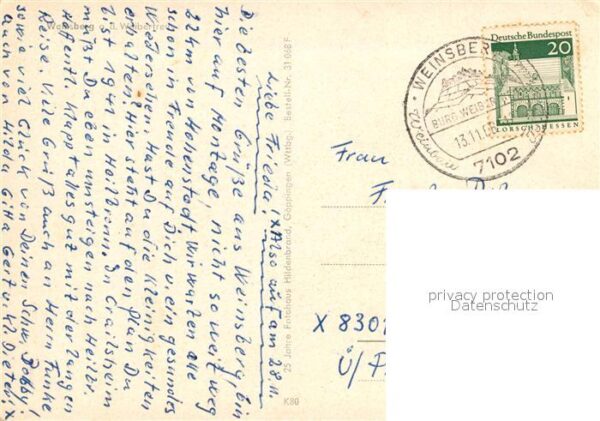 Weinsberg a. d. Weibertreu
Liebe Frieda! (x Also auf am 28.11.
Die besten Grüße aus Weinsberg, bin
hier auf Montage, nicht so weit weg
22 km von Hohenstadt. Wir warten alle
schon in Freude auf Dich u. ein gesundes
Wiedersehen. Hast Du die Kleinigkeiten
erhalten? Hier steht auf den Plan Du
bist 19 14 in Heilbronn. In Crailsheim
mußt Du eben umsteigen nach Heilbr.
Hoffentl. klappt alles gut mit der langen
Reise. Viele Grüß auch an Herrn Funke
sowie viel Glück von Deinen Schw. Bobby!
auch von Hilda Gitta Gert u. Kl. Dieter! x
25 Jahre Fotohaus Hildenbrand, Göppingen (Wttbg.) Bestell-Nr. 31 068 F
K80
WEINSBERG
BURG WEIB
13.11.
7102
Deutsche Bundespost
20
LORSCH HESSEN
Frau
X 8301
Ü/P
privacy protection
Datenschutz